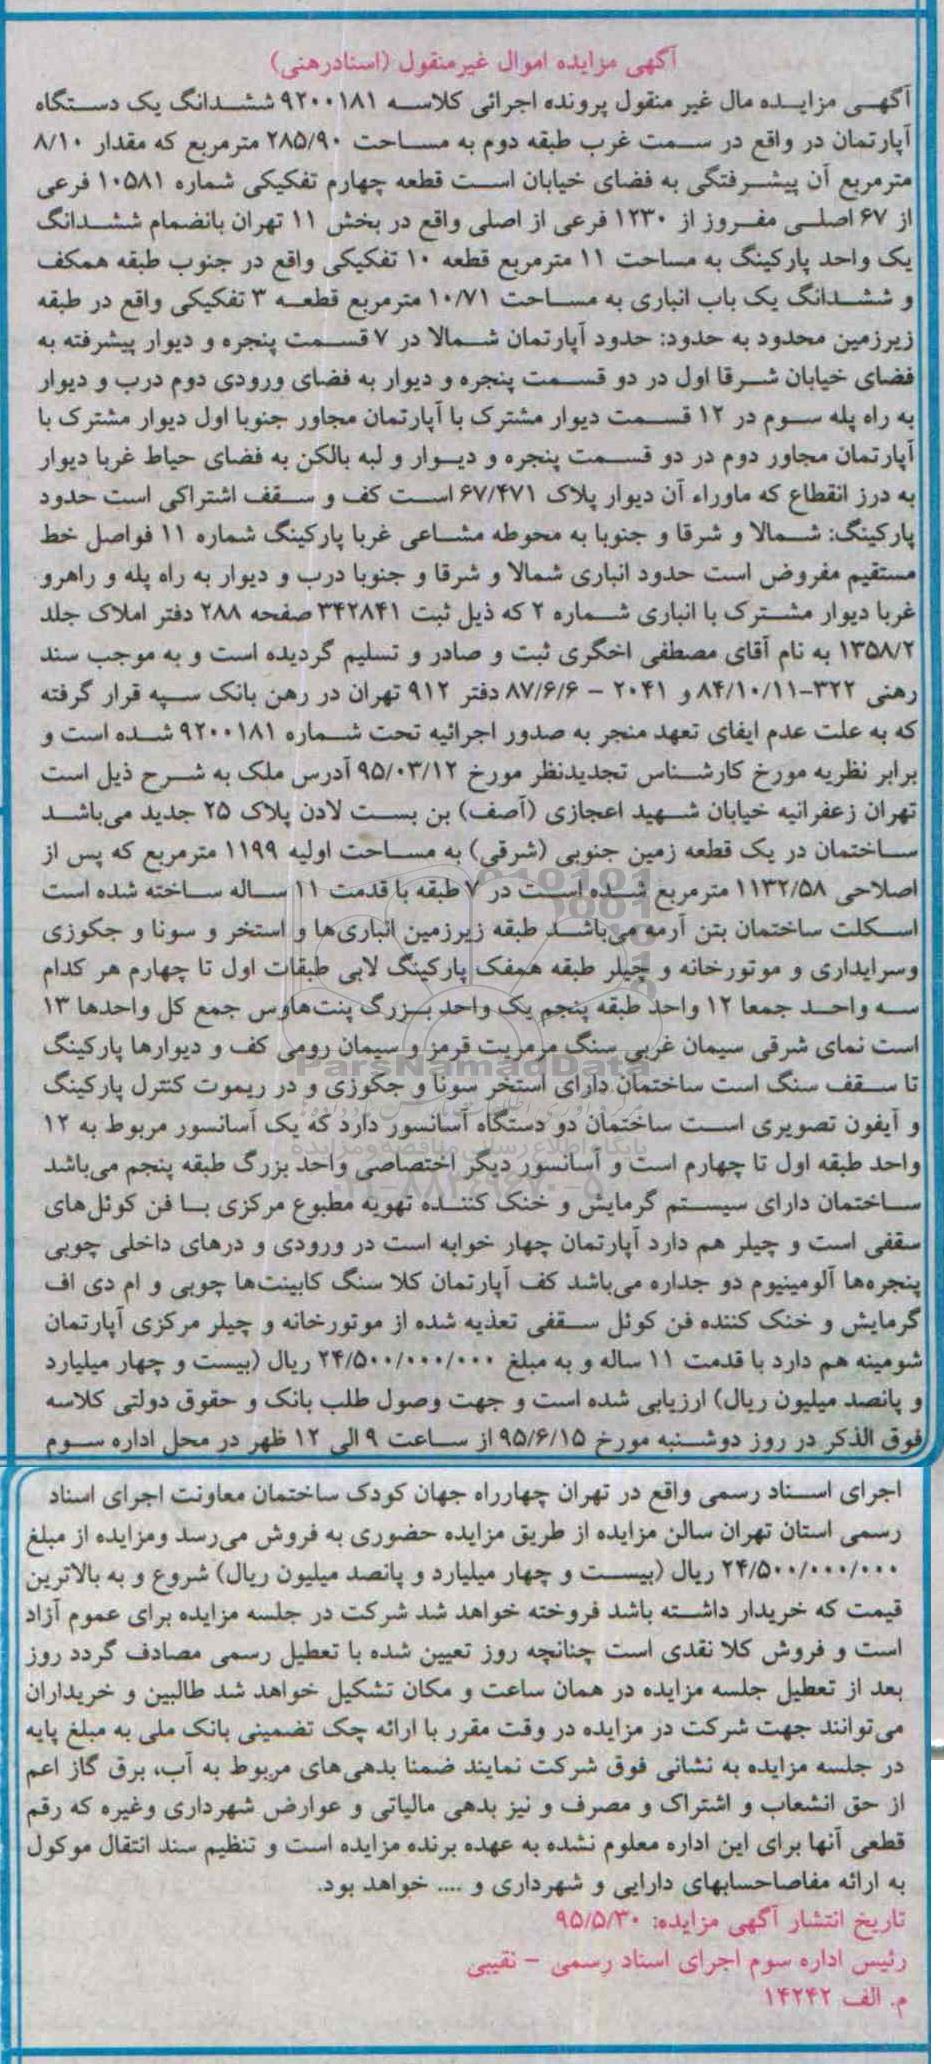 آگهی مزایده اموال غیرمنقول (اسنادرهنی)
آگهی مزایده مال غیر منقول پرونده اجرائی کلاسه ۹۲۰۰۱۸۱ ششدانگ یک دستگاه
آپارتمان در واقع در سمت غرب طبقه دوم به مساحت ۲۸۵/۹۰ مترمربع که مقدار ۸/۱۰
مترمربع آن پیشرفتگی به فضای خیابان است قطعه چهارم تفکیکی شماره ۱۰۵۸۱ فرعی
از ۶۷ اصلی مفروز از ۱۲۳۰ فرعی از اصلی واقع در بخش ۱۱ تهران بانضمام ششدانگ
یک واحد پارکینگ به مساحت ۱۱ مترمربع قطعه ۱۰ تفکیکی واقع در جنوب طبقه همکف
و ششدانگ یک باب انباری به مساحت ۱۰/۷۱ مترمربع قطعه ۳ تفکیکی واقع در طبقه
زیرزمین محدود به حدود: حدود آپارتمان شمالا در ۷ قسمت پنجره و دیوار پیشرفته به
فضای خیابان شرقا اول در دو قسمت پنجره و دیوار به فضای ورودی دوم درب و دیوار
به راه پله سوم در ۱۲ قسمت دیوار مشترک با آپارتمان مجاور جنوبا اول دیوار مشترک با
آپارتمان مجاور دوم در دو قسمت پنجره و دیوار و لبه بالکن به فضای حیاط غربا دیوار
به درز انقطاع که ماوراء آن دیوار پلاک ۶۷/۴۷۱ است کف و سقف اشتراکی است حدود
پارکینگ: شمالا و شرقا و جنوبا به محوطه مشاعی غربا پارکینگ شماره ۱۱ فواصل خط
مستقیم مفروض است حدود انباری شمالا و شرقا و جنوبا درب و دیوار به راه پله و راهرو
غربا دیوار مشترک با انباری شماره ۲ که ذیل ثبت ۳۴۲۸۴۱ صفحه ۲۸۸ دفتر املاک جلد
۱۳۵۸/۲ به نام آقای مصطفی اخگری ثبت و صادر و تسلیم گردیده است و به موجب سند
رهنی ۳۲۲-۸۴/۱۰/۱۱ و ۲۰۴۱ - ۸۷/۶/۶ دفتر ۹۱۲ تهران در رهن بانک سپه قرار گرفته
که به علت عدم ایفای تعهد منجر به صدور اجرائیه تحت شماره ۹۲۰۰۱۸۱ شده است و
برابر نظریه مورخ کارشناس تجدیدنظر مورخ ۹۵/۰۳/۱۲ آدرس ملک به شرح ذیل است
تهران زعفرانیه خیابان شهید اعجازی (آصف) بن بست لادن پلاک ۲۵ جدید می‌باشد
ساختمان در یک قطعه زمین جنوبی (شرقی) به مساحت اولیه ۱۱۹۹ مترمربع که پس از
اصلاحی ۱۱۳۲/۵۸ مترمربع شده است در ۷ طبقه با قدمت ۱۱ ساله ساخته شده است
اسکلت ساختمان بتن آرمه می‌باشد طبقه زیرزمین انباری‌ها و استخر و سونا و جکوزی
وسرایداری و موتورخانه و چیلر طبقه همفک پارکینگ لابی طبقات اول تا چهارم هر کدام
سه واحد جمعا ۱۲ واحد طبقه پنجم یک واحد بزرگ پنت‌هاوس جمع کل واحدها ۱۳
است نمای شرقی سیمان غربی سنگ مرمریت قرمز و سیمان رومی کف و دیوارها پارکینگ
تا سقف سنگ است ساختمان دارای استخر سونا و جکوزی و در ریموت کنترل پارکینگ
و آیفون تصویری است ساختمان دو دستگاه آسانسور دارد که یک آسانسور مربوط به ۱۲
واحد طبقه اول تا چهارم است و آسانسور دیگر اختصاصی واحد بزرگ طبقه پنجم می‌باشد
ساختمان دارای سیستم گرمایش و خنک کننده تهویه مطبوع مرکزی با فن کوئل‌های
سقفی است و چیلر هم دارد آپارتمان چهار خوابه است در ورودی و درهای داخلی چوبی
پنجره‌ها آلومینیوم دو جداره می‌باشد کف آپارتمان کلا سنگ کابینت‌ها چوبی و ام دی اف
گرمایش و خنک کننده فن کوئل سقفی تعذیه شده از موتورخانه و چیلر مرکزی آپارتمان
شومینه هم دارد با قدمت ۱۱ ساله و به مبلغ ۲۴/۵۰۰/۰۰۰/۰۰۰ ریال (بیست و چهار میلیارد
و پانصد میلیون ریال) ارزیابی شده است و جهت وصول طلب بانک و حقوق دولتی کلاسه
فوق الذکر در روز دوشنبه مورخ ۹۵/۶/۱۵ از ساعت ۹ الی ۱۲ ظهر در محل اداره سوم
اجرای اسناد رسمی واقع در تهران چهارراه جهان کودک ساختمان معاونت اجرای اسناد
رسمی استان تهران سالن مزایده از طریق مزایده حضوری به فروش می‌رسد ومزایده از مبلغ
۲۴/۵۰۰/۰۰۰/۰۰۰ ریال (بیست و چهار میلیارد و پانصد میلیون ریال) شروع و به بالاترین
قیمت که خریدار داشته باشد فروخته خواهد شد شرکت در جلسه مزایده برای عموم آزاد
است و فروش کلا نقدی است چنانچه روز تعیین شده با تعطیل رسمی مصادف گردد روز
بعد از تعطیل جلسه مزایده در همان ساعت و مکان تشکیل خواهد شد طالبین و خریداران
می‌توانند جهت شرکت در مزایده در وقت مقرر با ارائه چک تضمینی بانک ملی به مبلغ پایه
در جلسه مزایده به نشانی فوق شرکت نمایند ضمنا بدهی‌های مربوط به آب، برق گاز اعم
از حق انشعاب و اشتراک و مصرف و نیز بدهی مالیاتی و عوارض شهرداری وغیره که رقم
قطعی آنها برای این اداره معلوم نشده به عهده برنده مزایده است و تنظیم سند انتقال موکول
به ارائه مفاصاحسابهای دارایی و شهرداری و .... خواهد بود.
تاریخ انتشار آگهی مزایده: ۹۵/۵/۳۰
رئیس اداره سوم اجرای اسناد رسمی - نقیبی
م. الف ۱۴۲۴۲
ParsNamadData
پایگاه اطلاع رسانی مناقصه و مزایده